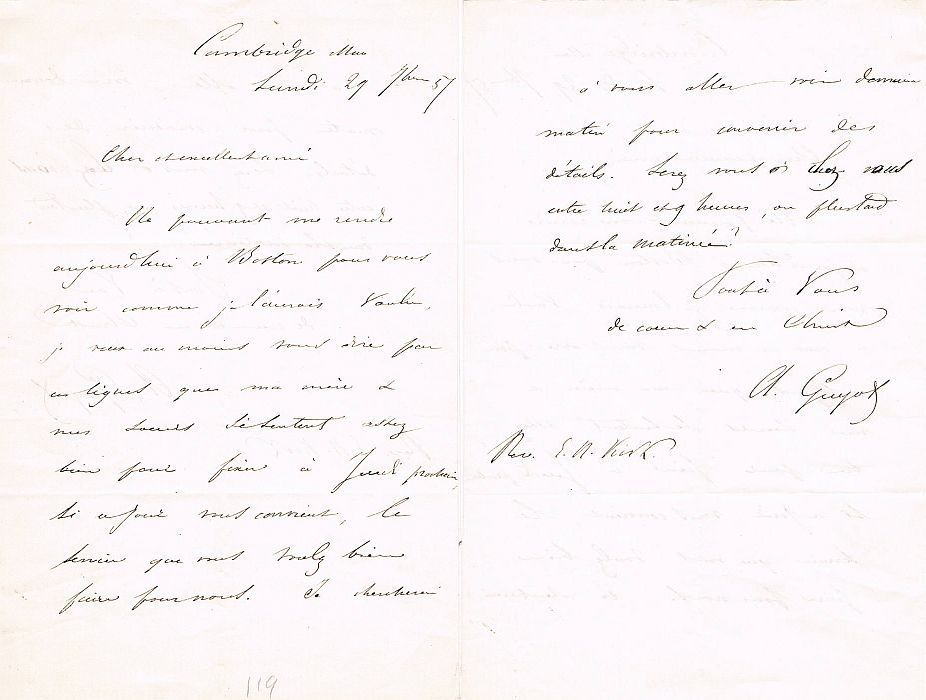 Cambridge Mass
Lundi 29 7bre 57
Cher et excellent ami
Ne pouvant me rendre
aujourdhui à Boston pour vous
voir comme je l'aurais voulu,
je veux au moins vous dire par
ces lignes que ma mère &
mes soeurs se sentent assez
bien pour fixer à Jeudi prochain,
si ce jour vous convient, le
service que vous voulez bien
faire pour nous. Je chercherai
119
à vous aller voir demain
matin pour convenir des
détails. Serez vous chez vous
entre huit et 9 heures, ou plus tard
dans la matinée?
Tout à Vous
de coeur & en Christ
A. Guyot
Rev. E. N. Kirk.